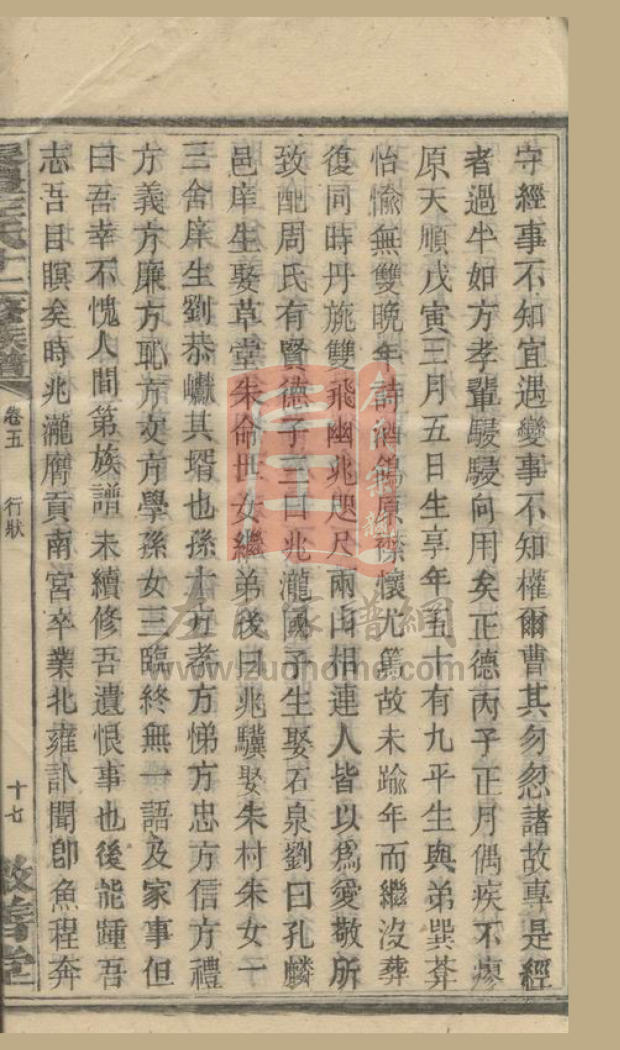 守經事不知宜遇變事不知權爾曹其勿忽諸故專是經
者過半如方孝輩駸駸向用矣正德丙子正月偶疾不瘳
原天順戊寅三月五日生享年五十有九平生與弟巽莽
怡愉無雙晚年詩酒鴒原襟懷尤篤故未踰年而繼沒葬
復同時丹旐雙飛幽兆咫尺兩山相連人皆以為愛敬所
致配周氏有賢德子三曰兆瀧國子生娶石泉劉曰孔麟
邑庠生娶草堂朱命世女繼弟後曰兆驥娶朱村朱女一
三舍庠生劉恭巘其壻也孫十方孝方悌方忠方信方禮
方義方廉方恥方文方學孫女三臨終無一語及家事但
曰吾幸不愧人間第族譜未續修吾遺恨事也後能踵吾
志吾目瞑矣時兆瀧膺貢南宮卒業北雍訃聞卽魚程奔
王氏十二修族譜
卷五
行狀
十七
敬善堂
左氏家譜網
www.zuohome.com